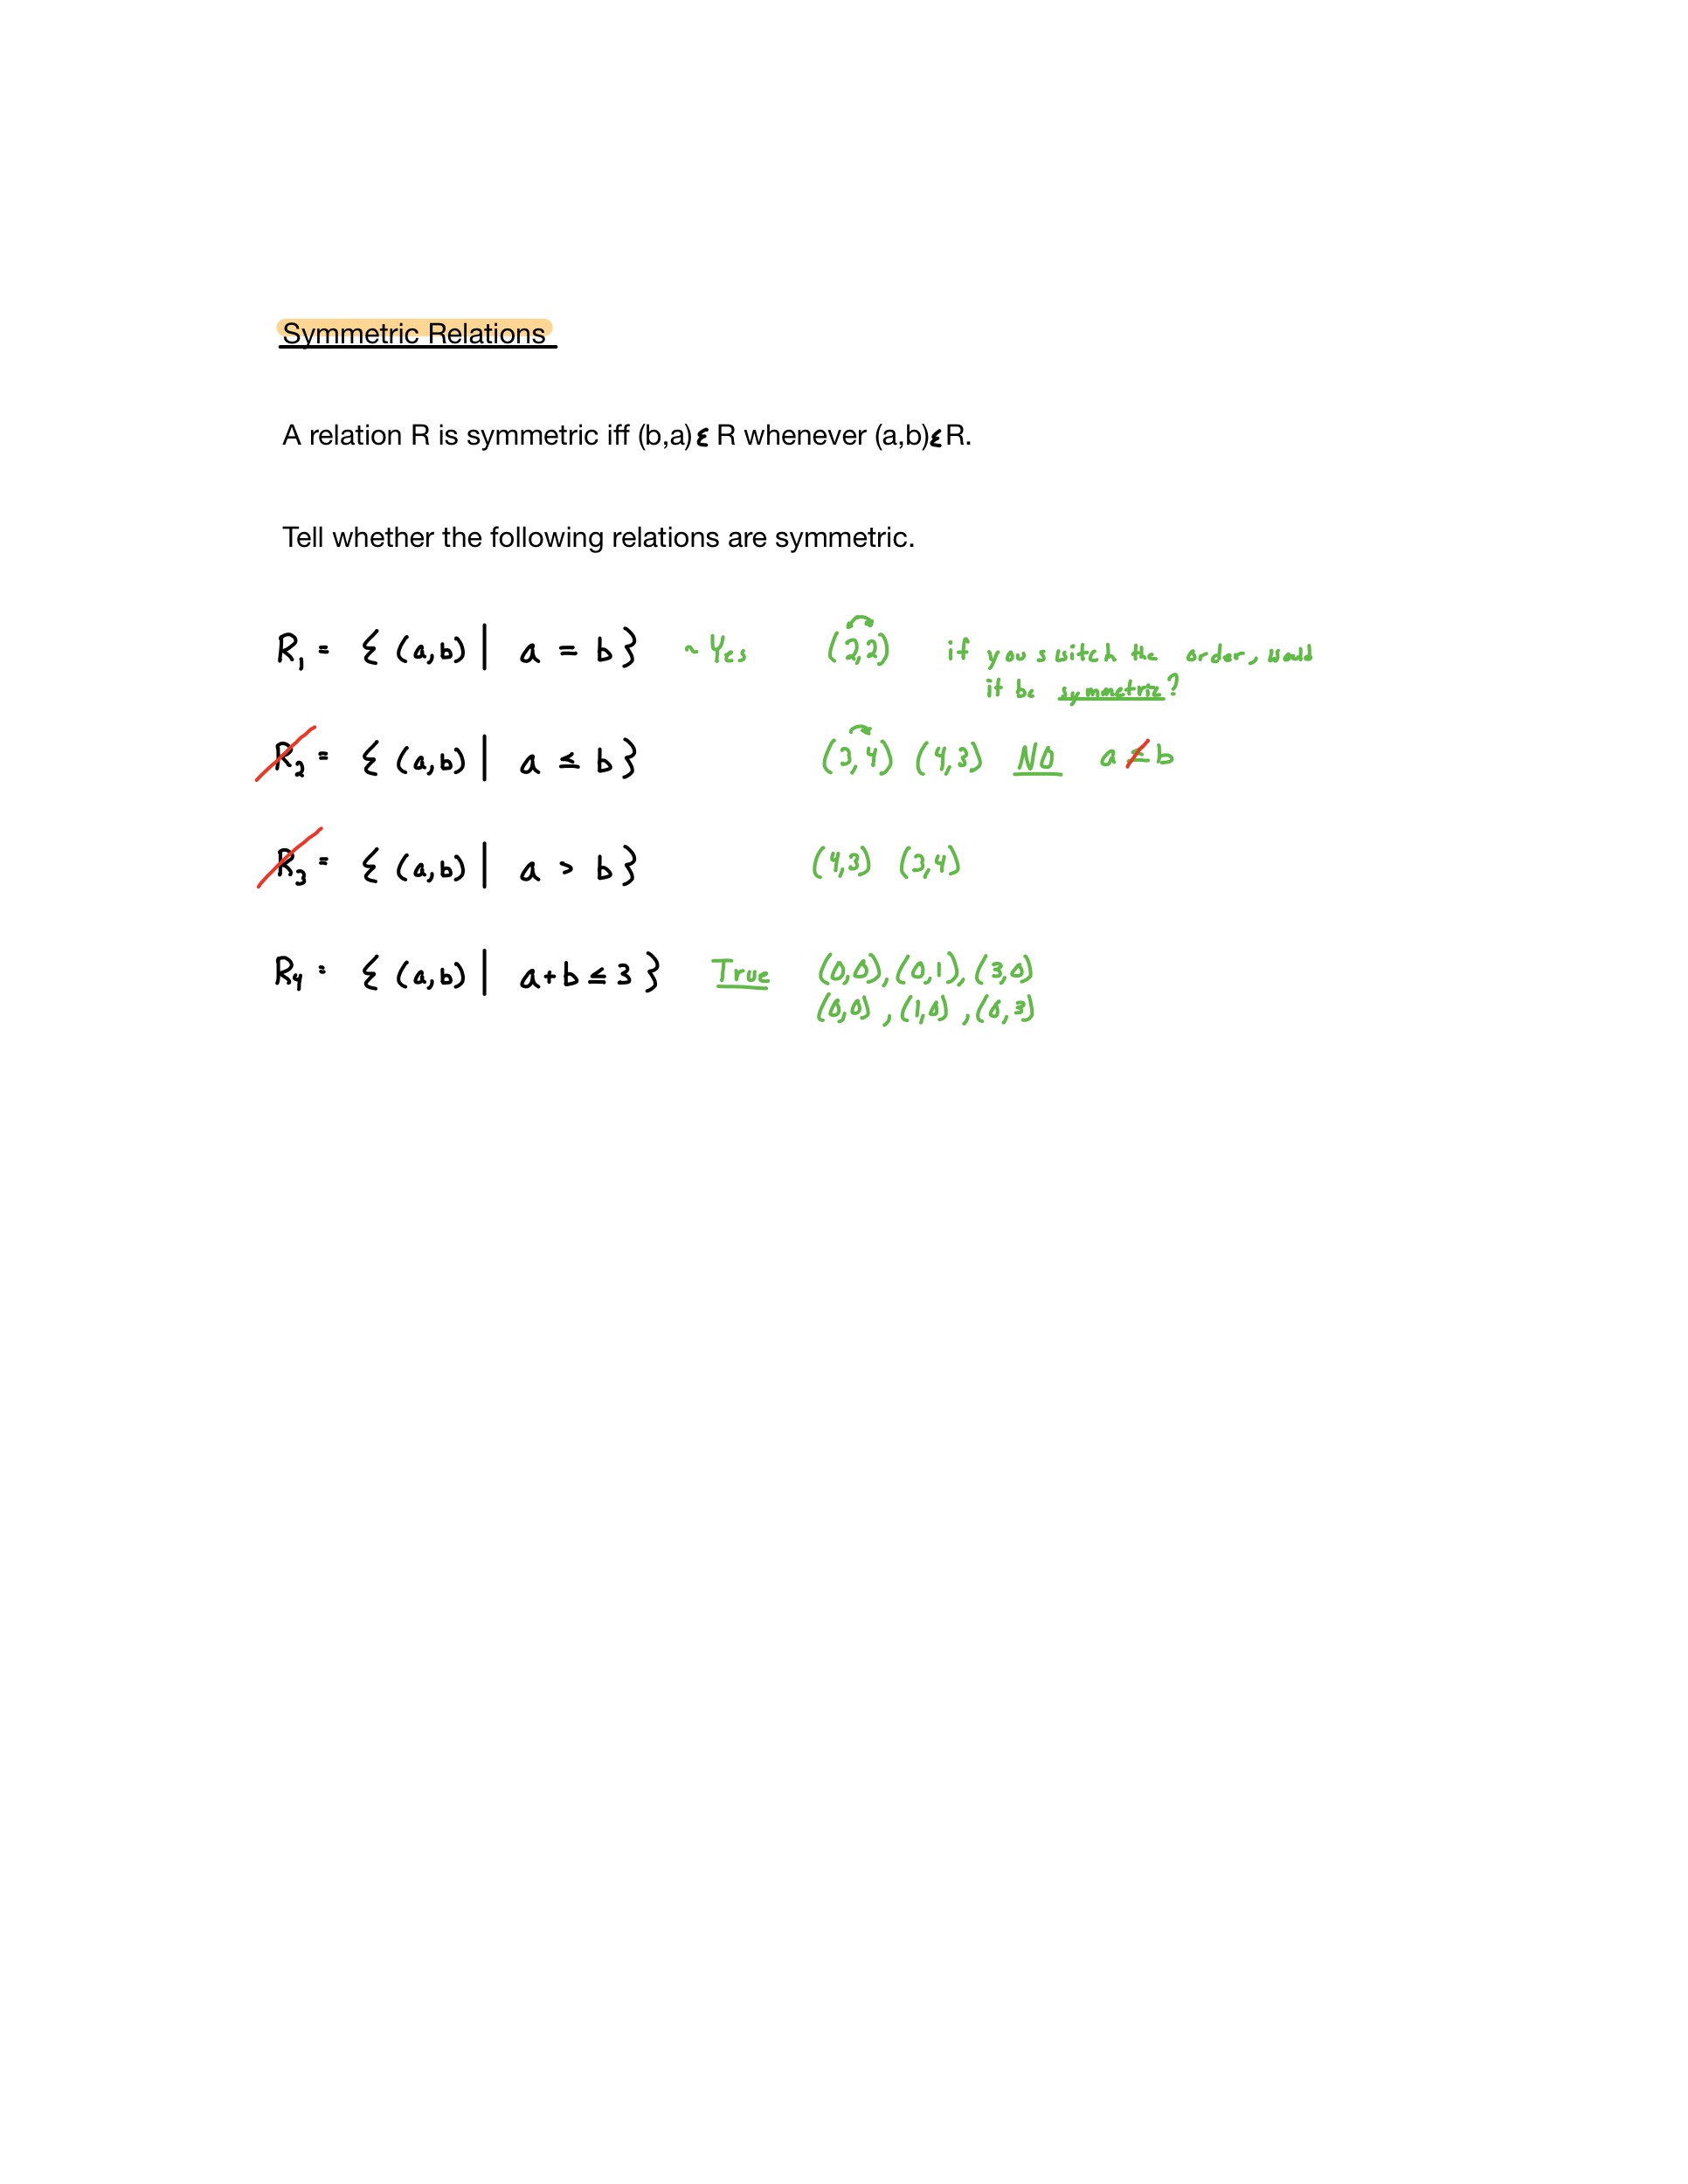 Symmetric Relations
A relation R is symmetric iff (b,a) ε R whenever (a,b) ε R.
Tell whether the following relations are symmetric.
R₁ = { (a,b) | a = b } ~ Yes (2,2) if you switch the order, would
it be symmetric?
R₂ = { (a,b) | a ≤ b } (3,4) (4,3) NO a ≰ b
R₃ = { (a,b) | a > b } (4,3) (3,4)
R₄ = { (a,b) | a+b ≤ 3 } True (0,0), (0,1), (3,0)
(0,0), (1,0), (0,3)